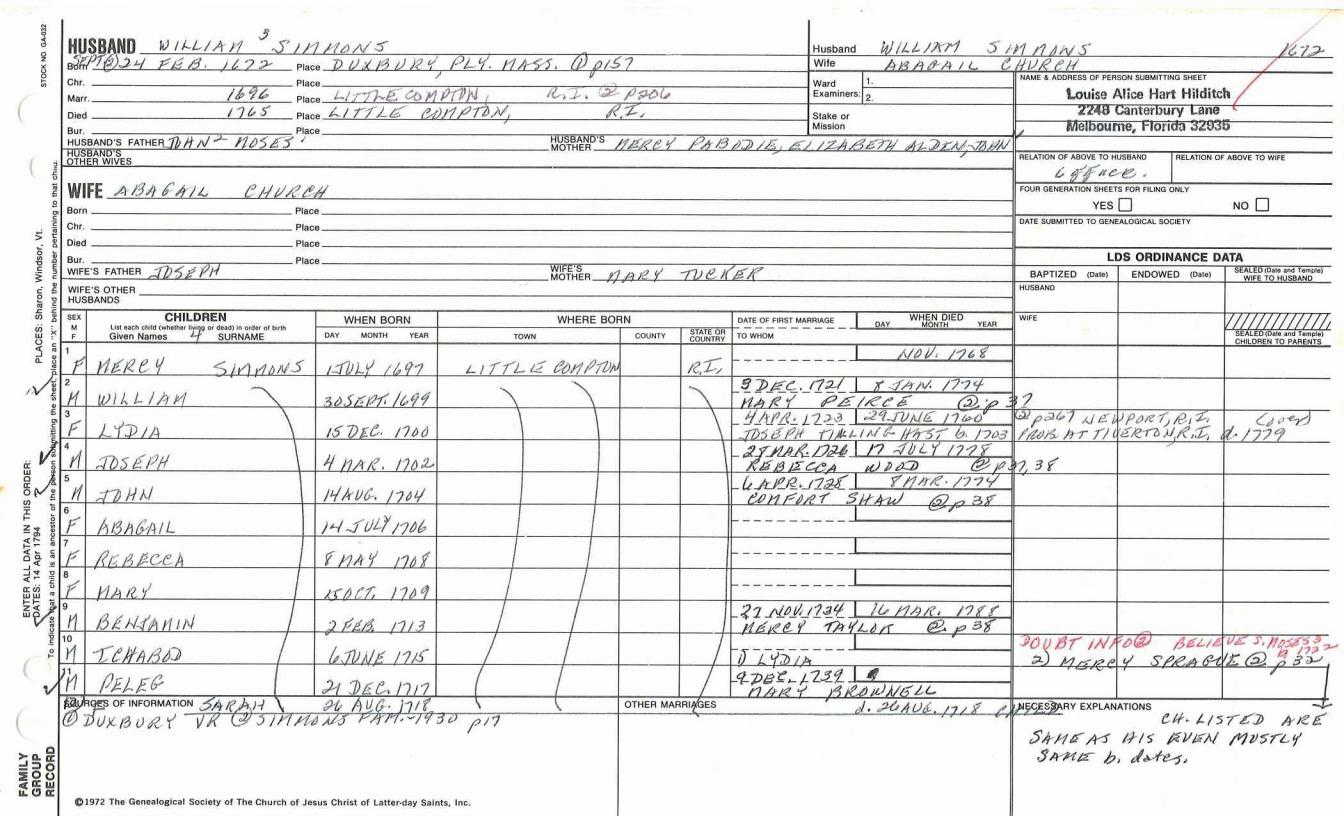 STOCK NO. GA-032
HUSBAND WILLIAM 3 SIMMONS
Born SEPT② 24 FEB. 1672 Place DUXBURY, PLY. MASS. ① p157
Chr. Place
Marr. 1696 Place LITTLE COMPTON, R.I. ② p206
Died 1765 Place LITTLE COMPTON, R.I.
Bur. Place
HUSBAND'S FATHER JOHN 2 MOSES 1 HUSBAND'S MOTHER MERCY PABODIE, ELIZABETH ALDEN, JOHN
HUSBAND'S OTHER WIVES
Husband WILLIAM SIMMONS 1672
Wife ABAGAIL CHURCH
Ward Examiners: 1.
2.
Stake or Mission
NAME & ADDRESS OF PERSON SUBMITTING SHEET
Louise Alice Hart Hilditch
2248 Canterbury Lane
Melbourne, Florida 32935
RELATION OF ABOVE TO HUSBAND RELATION OF ABOVE TO WIFE
FOUR GENERATION SHEETS FOR FILING ONLY
YES NO
DATE SUBMITTED TO GENEALOGICAL SOCIETY
WIFE ABAGAIL CHURCH
Born Place
Chr. Place
Died Place
Bur. Place
WIFE'S FATHER JOSEPH WIFE'S MOTHER MARY TUCKER
WIFE'S OTHER HUSBANDS
LDS ORDINANCE DATA
BAPTIZED (Date) ENDOWED (Date) SEALED (Date and Temple) WIFE TO HUSBAND
HUSBAND
WIFE
SEALED (Date and Temple) CHILDREN TO PARENTS
SEX M F CHILDREN List each child (whether living or dead) in order of birth Given Names 4 SURNAME
WHEN BORN DAY MONTH YEAR
WHERE BORN TOWN COUNTY STATE OR COUNTRY
DATE OF FIRST MARRIAGE TO WHOM
WHEN DIED DAY MONTH YEAR
1 F MERCY SIMMONS 1 JULY 1697 LITTLE COMPTON R.I. NOV. 1768
2 M WILLIAM 30 SEPT. 1699 9 DEC. 1721 8 JAN. 1774
MARY PEIRCE ② p 37
3 F LYDIA 15 DEC. 1700 4 APR. 1723 29 JUNE 1760 ② p267 NEWPORT, R.I. (over)
JOSEPH TILLINGHAST b. 1703 PROB. AT TIVERTON, R.I. d. 1779
4 M JOSEPH 4 MAR. 1702 28 MAR. 1726 17 JULY 1778
REBECCA WOOD @ p 37, 38
5 M JOHN 14 AUG. 1704 6 APR. 1728 8 MAR. 1774
COMFORT SHAW @ p 38
6 F ABAGAIL 14 JULY 1706
7 F REBECCA 8 MAY 1708
8 F MARY 15 OCT. 1709
9 M BENJAMIN 2 FEB. 1713 27 NOV. 1734 16 MAR. 1788
MERCY TAYLOR ② p 38
10 M ICHABOD 6 JUNE 1715 1) LYDIA
DOUBT INFO② BELIEVE S. MOSES 3 B. 1722
2) MERCY SPRAGUE ② p 32
11 M PELEG 21 DEC. 1717 9 DEC. 1739
MARY BROWNELL
F SARAH 26 AUG. 1718 d. 26 AUG. 1718
SOURCES OF INFORMATION
① DUXBURY VR ② SIMMONS FAM. - 1930 p17
OTHER MARRIAGES
NECESSARY EXPLANATIONS
CH. LISTED ARE
SAME AS HIS EVEN MOSTLY
SAME b. dates.
PLACES: Sharon, Windsor, Vt.
ENTER ALL DATA IN THIS ORDER:
DATES: 14 Apr 1794
To indicate that a child is an ancestor of the person submitting the sheet, place an "X" behind the number pertaining to that child.
FAMILY GROUP RECORD
©1972 The Genealogical Society of The Church of Jesus Christ of Latter-day Saints, Inc.